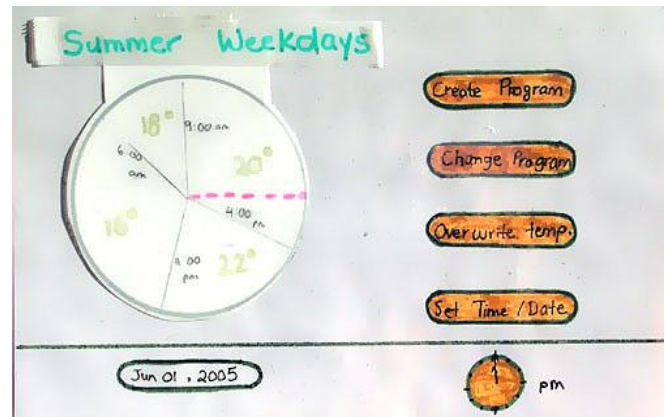 Summer Weekdays
18°
9:00 am
20°
6:00
am
4:00
pm
16°
22°
pm
Create Program
Change Program
Overwrite temp.
Set Time / Date
Jun 01, 2005
pm